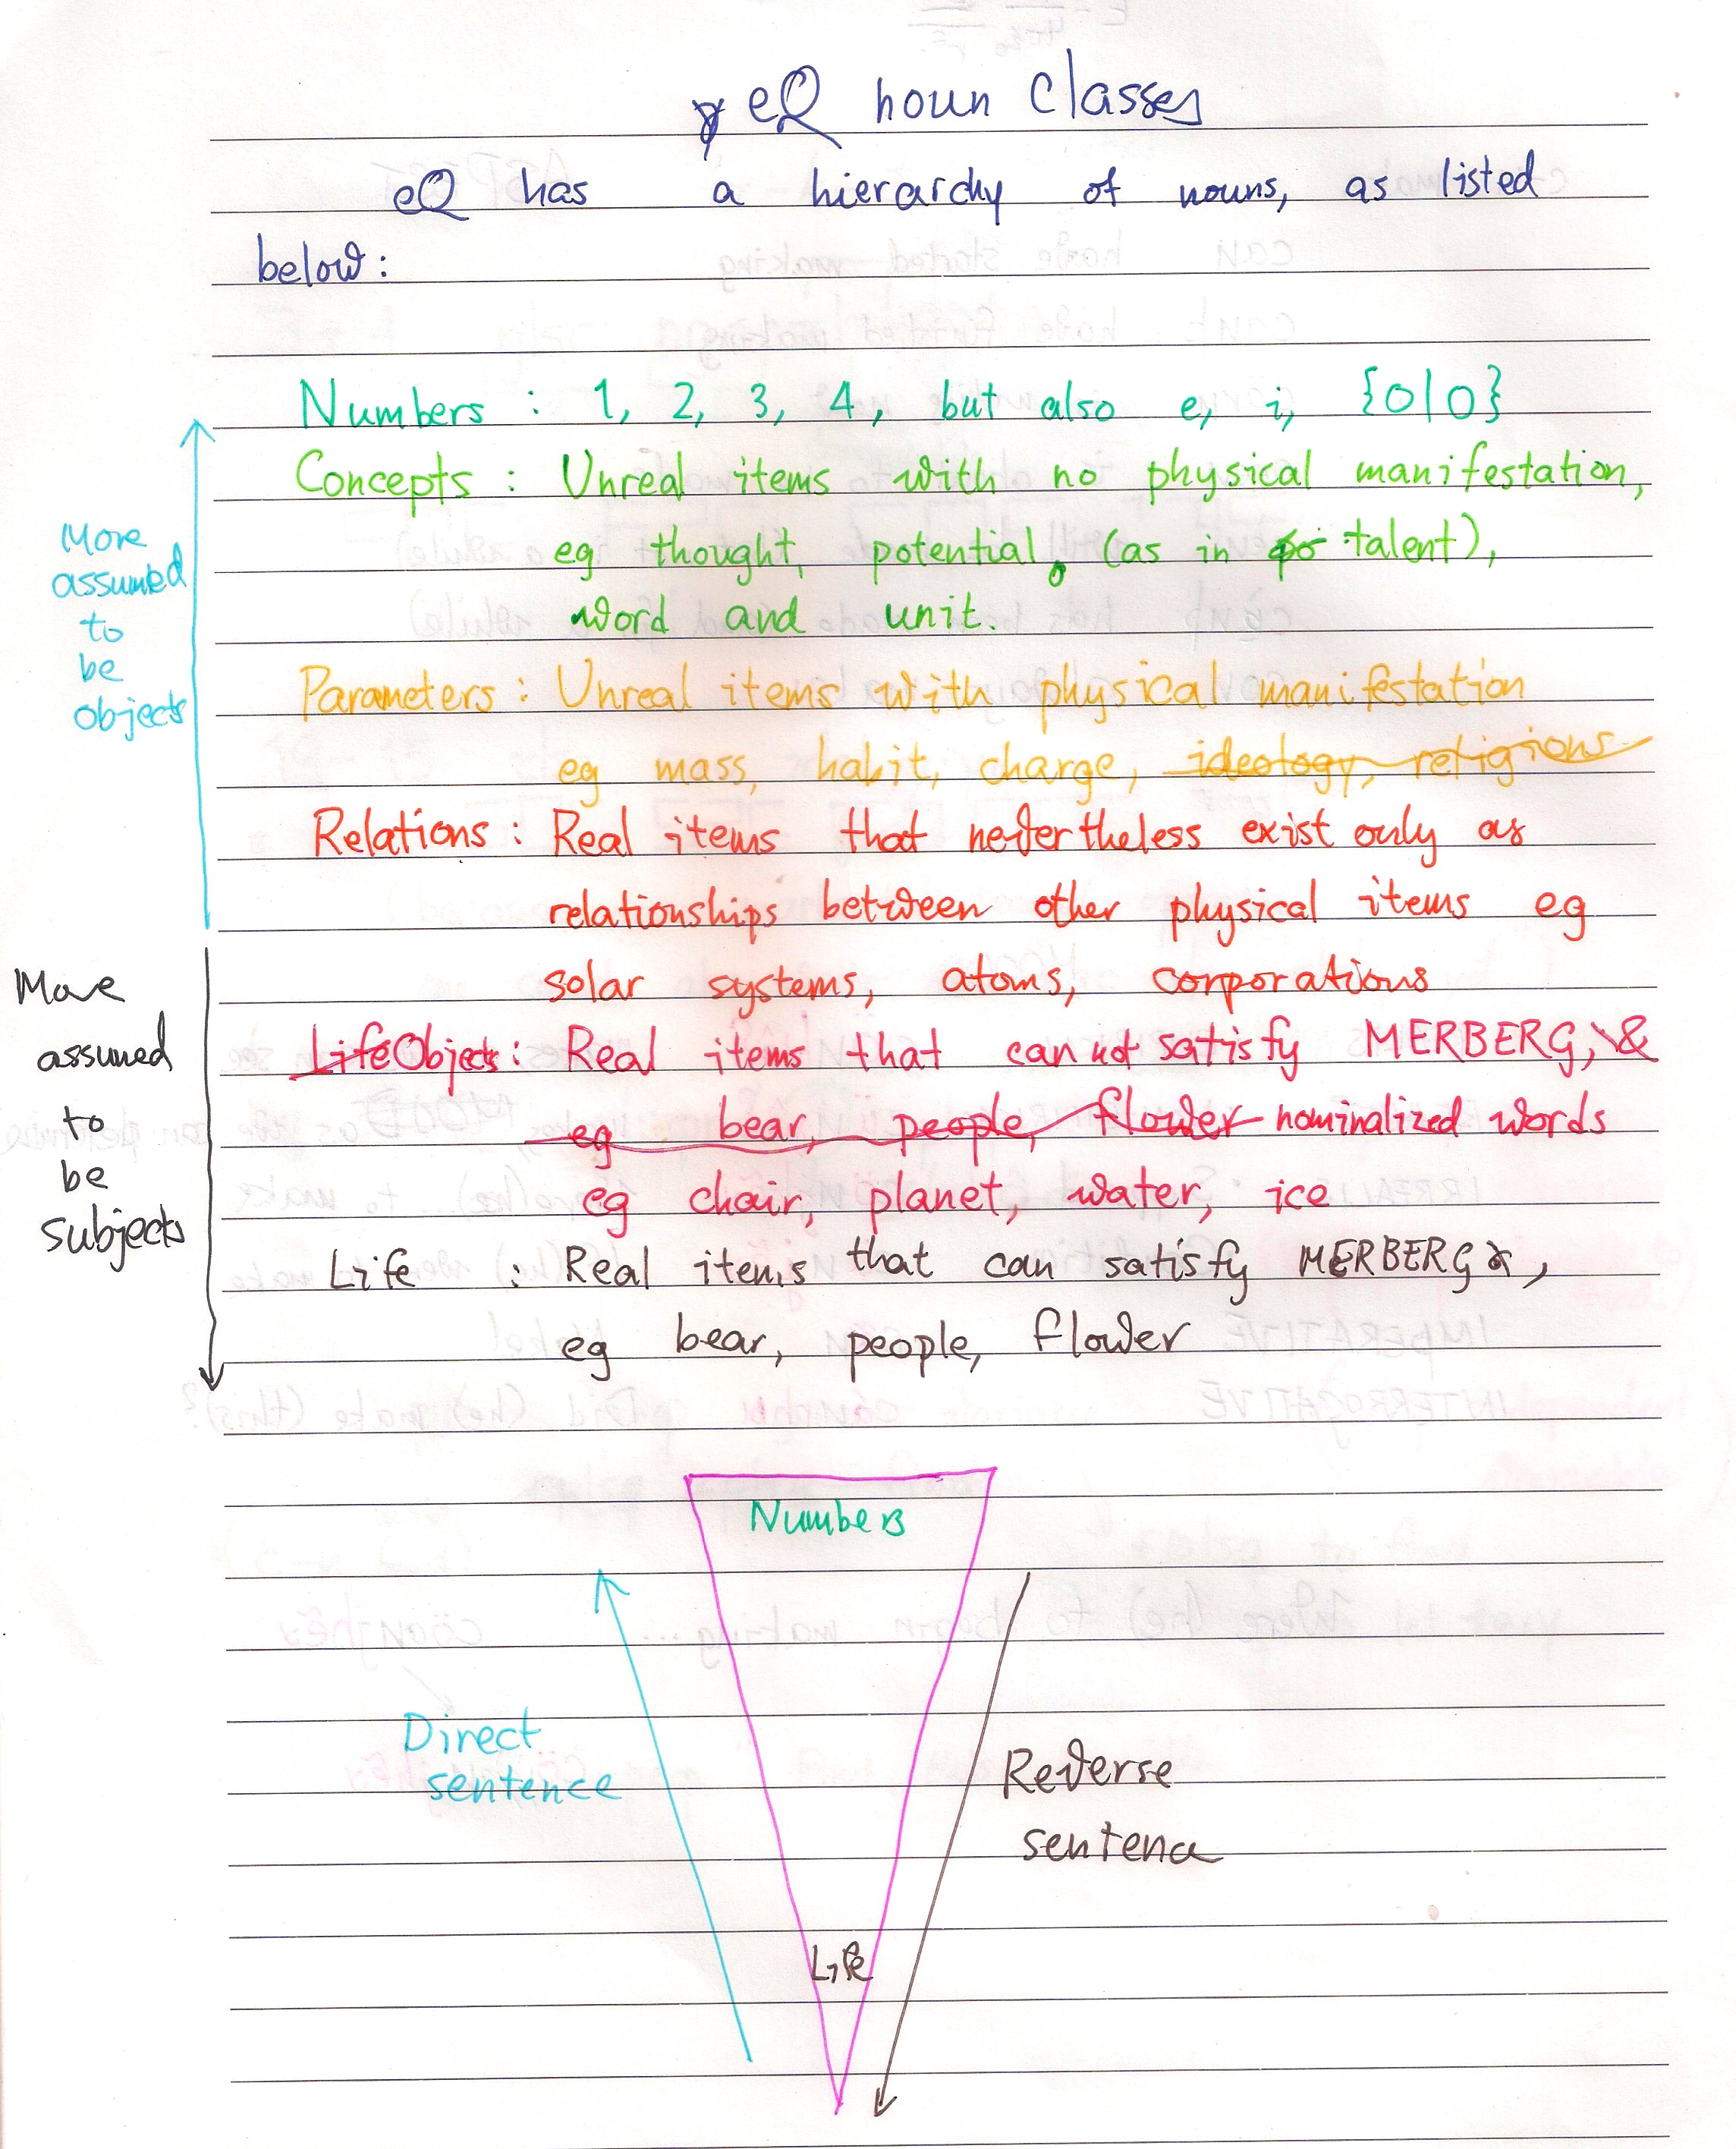 eQ noun classes
eQ has a hierarchy of nouns, as listed
below:
Numbers : 1, 2, 3, 4, but also e, i, {0|0}
Concepts : Unreal items with no physical manifestation,
eg thought, potential, (as in talent),
word and unit.
Parameters : Unreal items with physical manifestation
eg mass, habit, charge, ideology, religions
Relations : Real items that nevertheless exist only as
relationships between other physical items eg
solar systems, atoms, corporations
Life Objects : Real items that can not satisfy MERBERG, &
eg bear, people, flower nominalized words
eg chair, planet, water, ice
Life : Real items that can satisfy MERBERG,
eg bear, people, flower
More
assumed
to
be
objects
More
assumed
to
be
subjects
Numbers
Direct
sentence
Reverse
sentence
Life